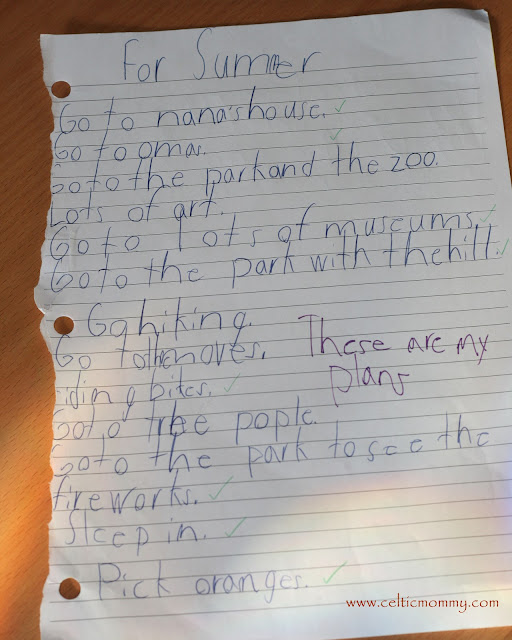 For Summer
Go to nana's house.
Go to omas.
Go to the park and the zoo.
Lots of art.
Go to lots of museums.
Go to the park with the hill.
Go hiking.
Go to the moves.
These are my
plans
iding bikes.
Go to tree pople.
Go to the park to see the
fireworks.
Sleep in.
Pick oranges.
www.celticmommy.com